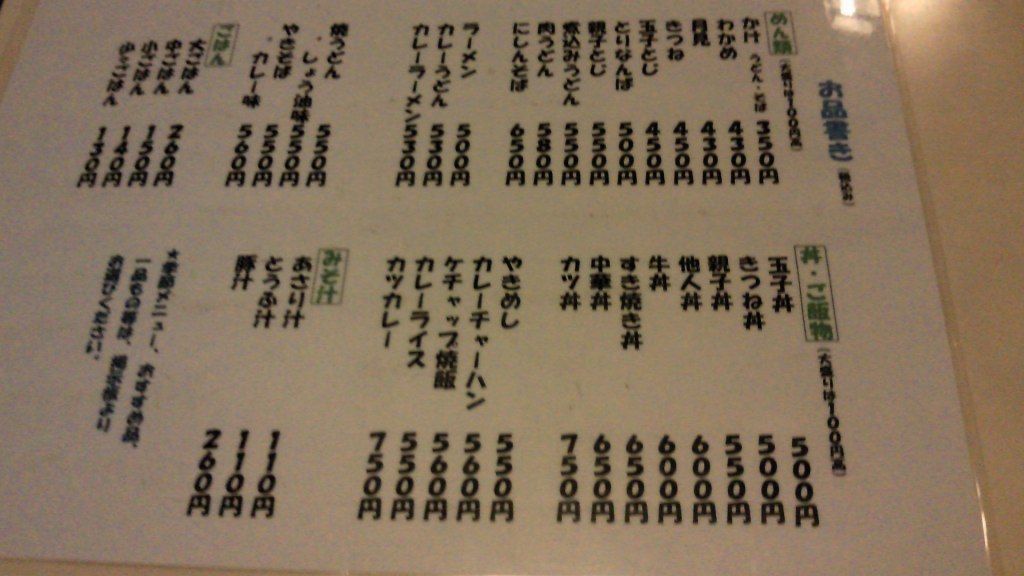 お品書き (税込み)
めん類 (大盛りは100円高)
かけ うどん・そば 350円
わかめ 430円
月見 430円
きつね 450円
玉子とじ 450円
とりなんば 500円
親子とじ 550円
煮込みうどん 550円
肉うどん 580円
にしんそば 650円
ラーメン 500円
カレーうどん 530円
カレーラーメン 530円
焼うどん 550円
・しょう油味 550円
やきそば 550円
・カレー味 560円
ごはん
大ごはん 260円
中ごはん 150円
小ごはん 140円
小々ごはん 130円
丼・ご飯物 (大盛りは100円高)
玉子丼 500円
きつね丼 500円
親子丼 550円
他人丼 600円
牛丼 600円
すき焼き丼 650円
中華丼 650円
カツ丼 750円
やきめし 550円
カレーチャーハン 560円
ケチャップ焼飯 560円
カレーライス 550円
カツカレー 750円
みそ汁
あさり汁 110円
とうふ汁 110円
豚汁 260円
★季節メニュー、おすすめ品、
一品もの等は、掲示板より
お選びください。